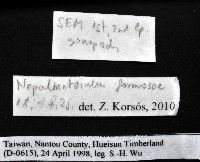 SEM 1st, 2nd lp.
gonopods
Nepalmatoiulus formosae
det. Z. Korsós, 2010
Taiwan, Nantou County, Hueisun Timberland
(D-0615), 24 April 1998, leg. S.-H. Wu